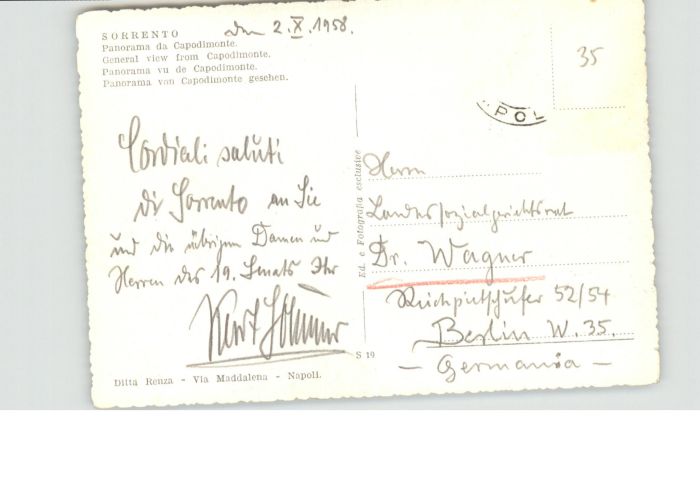 SORRENTO
den 2.X.1958.
Panorama da Capodimonte.
General view from Capodimonte.
Panorama vu de Capodimonte.
Panorama von Capodimonte gesehen.
35
POL
Cordiali saluti
di Sorrento an Sie
und die übrigen Damen und
Herren des 19. Senats Ihr
Kurt
Herrn
Landessozialgerichtsrat
Dr. Wagner
Reichpietschufer 52/54
Berlin W. 35.
- Germania -
Ed. e Fotografia esclusive
S 19
Ditta Renza - Via Maddalena - Napoli.